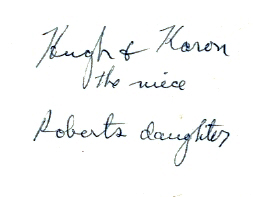 Hugh & Karon
the niece
Roberts daughter